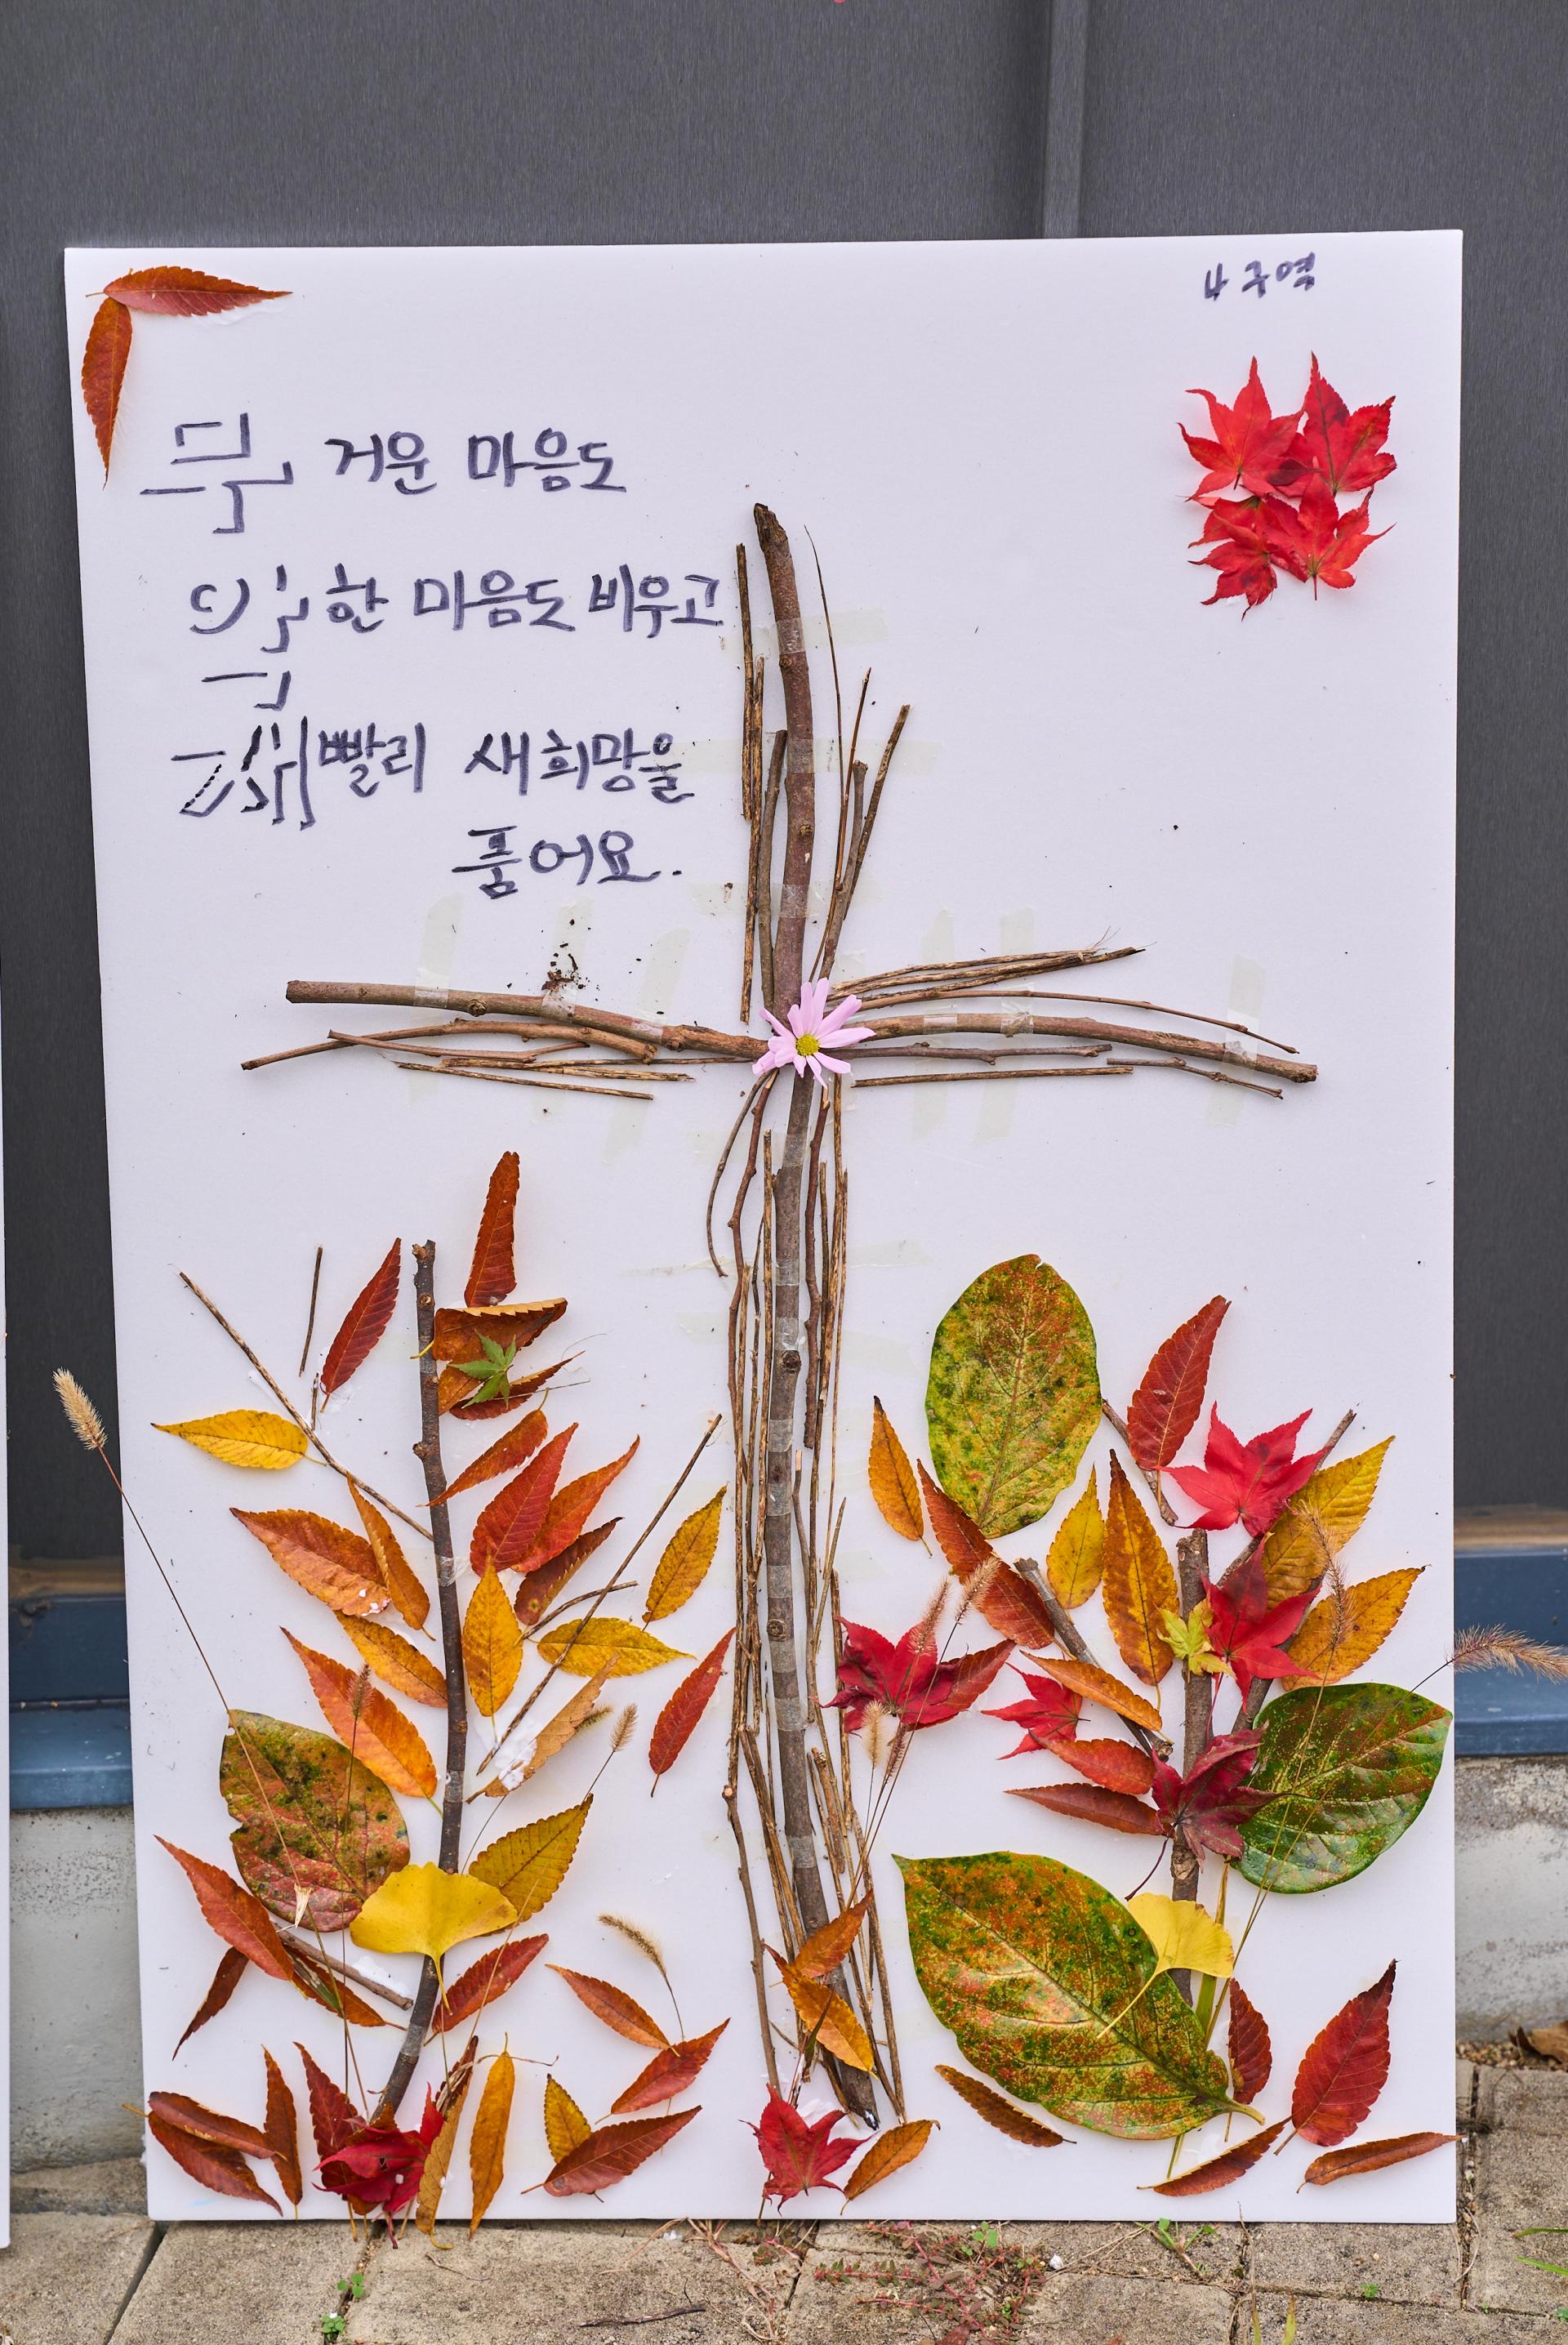 4구역
무거운 마음도
악한 마음도 비우고
재빨리 새희망을
품어요.